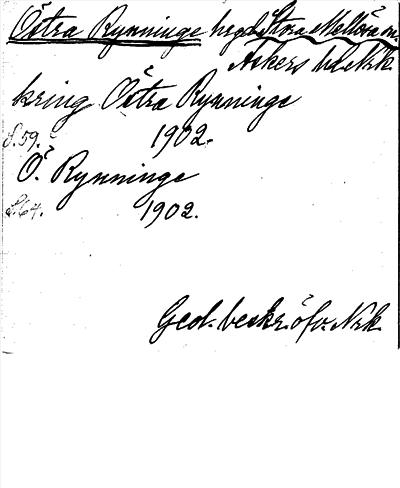 Östra Rynninge hvgd Stora Mellösa sn.
Askers hd Nrk.
kring Östra Rynninge
S. 59. 1902.
Ö. Rynninge
S. 64. 1902.
Geol. beskr. öfv. Nrk.